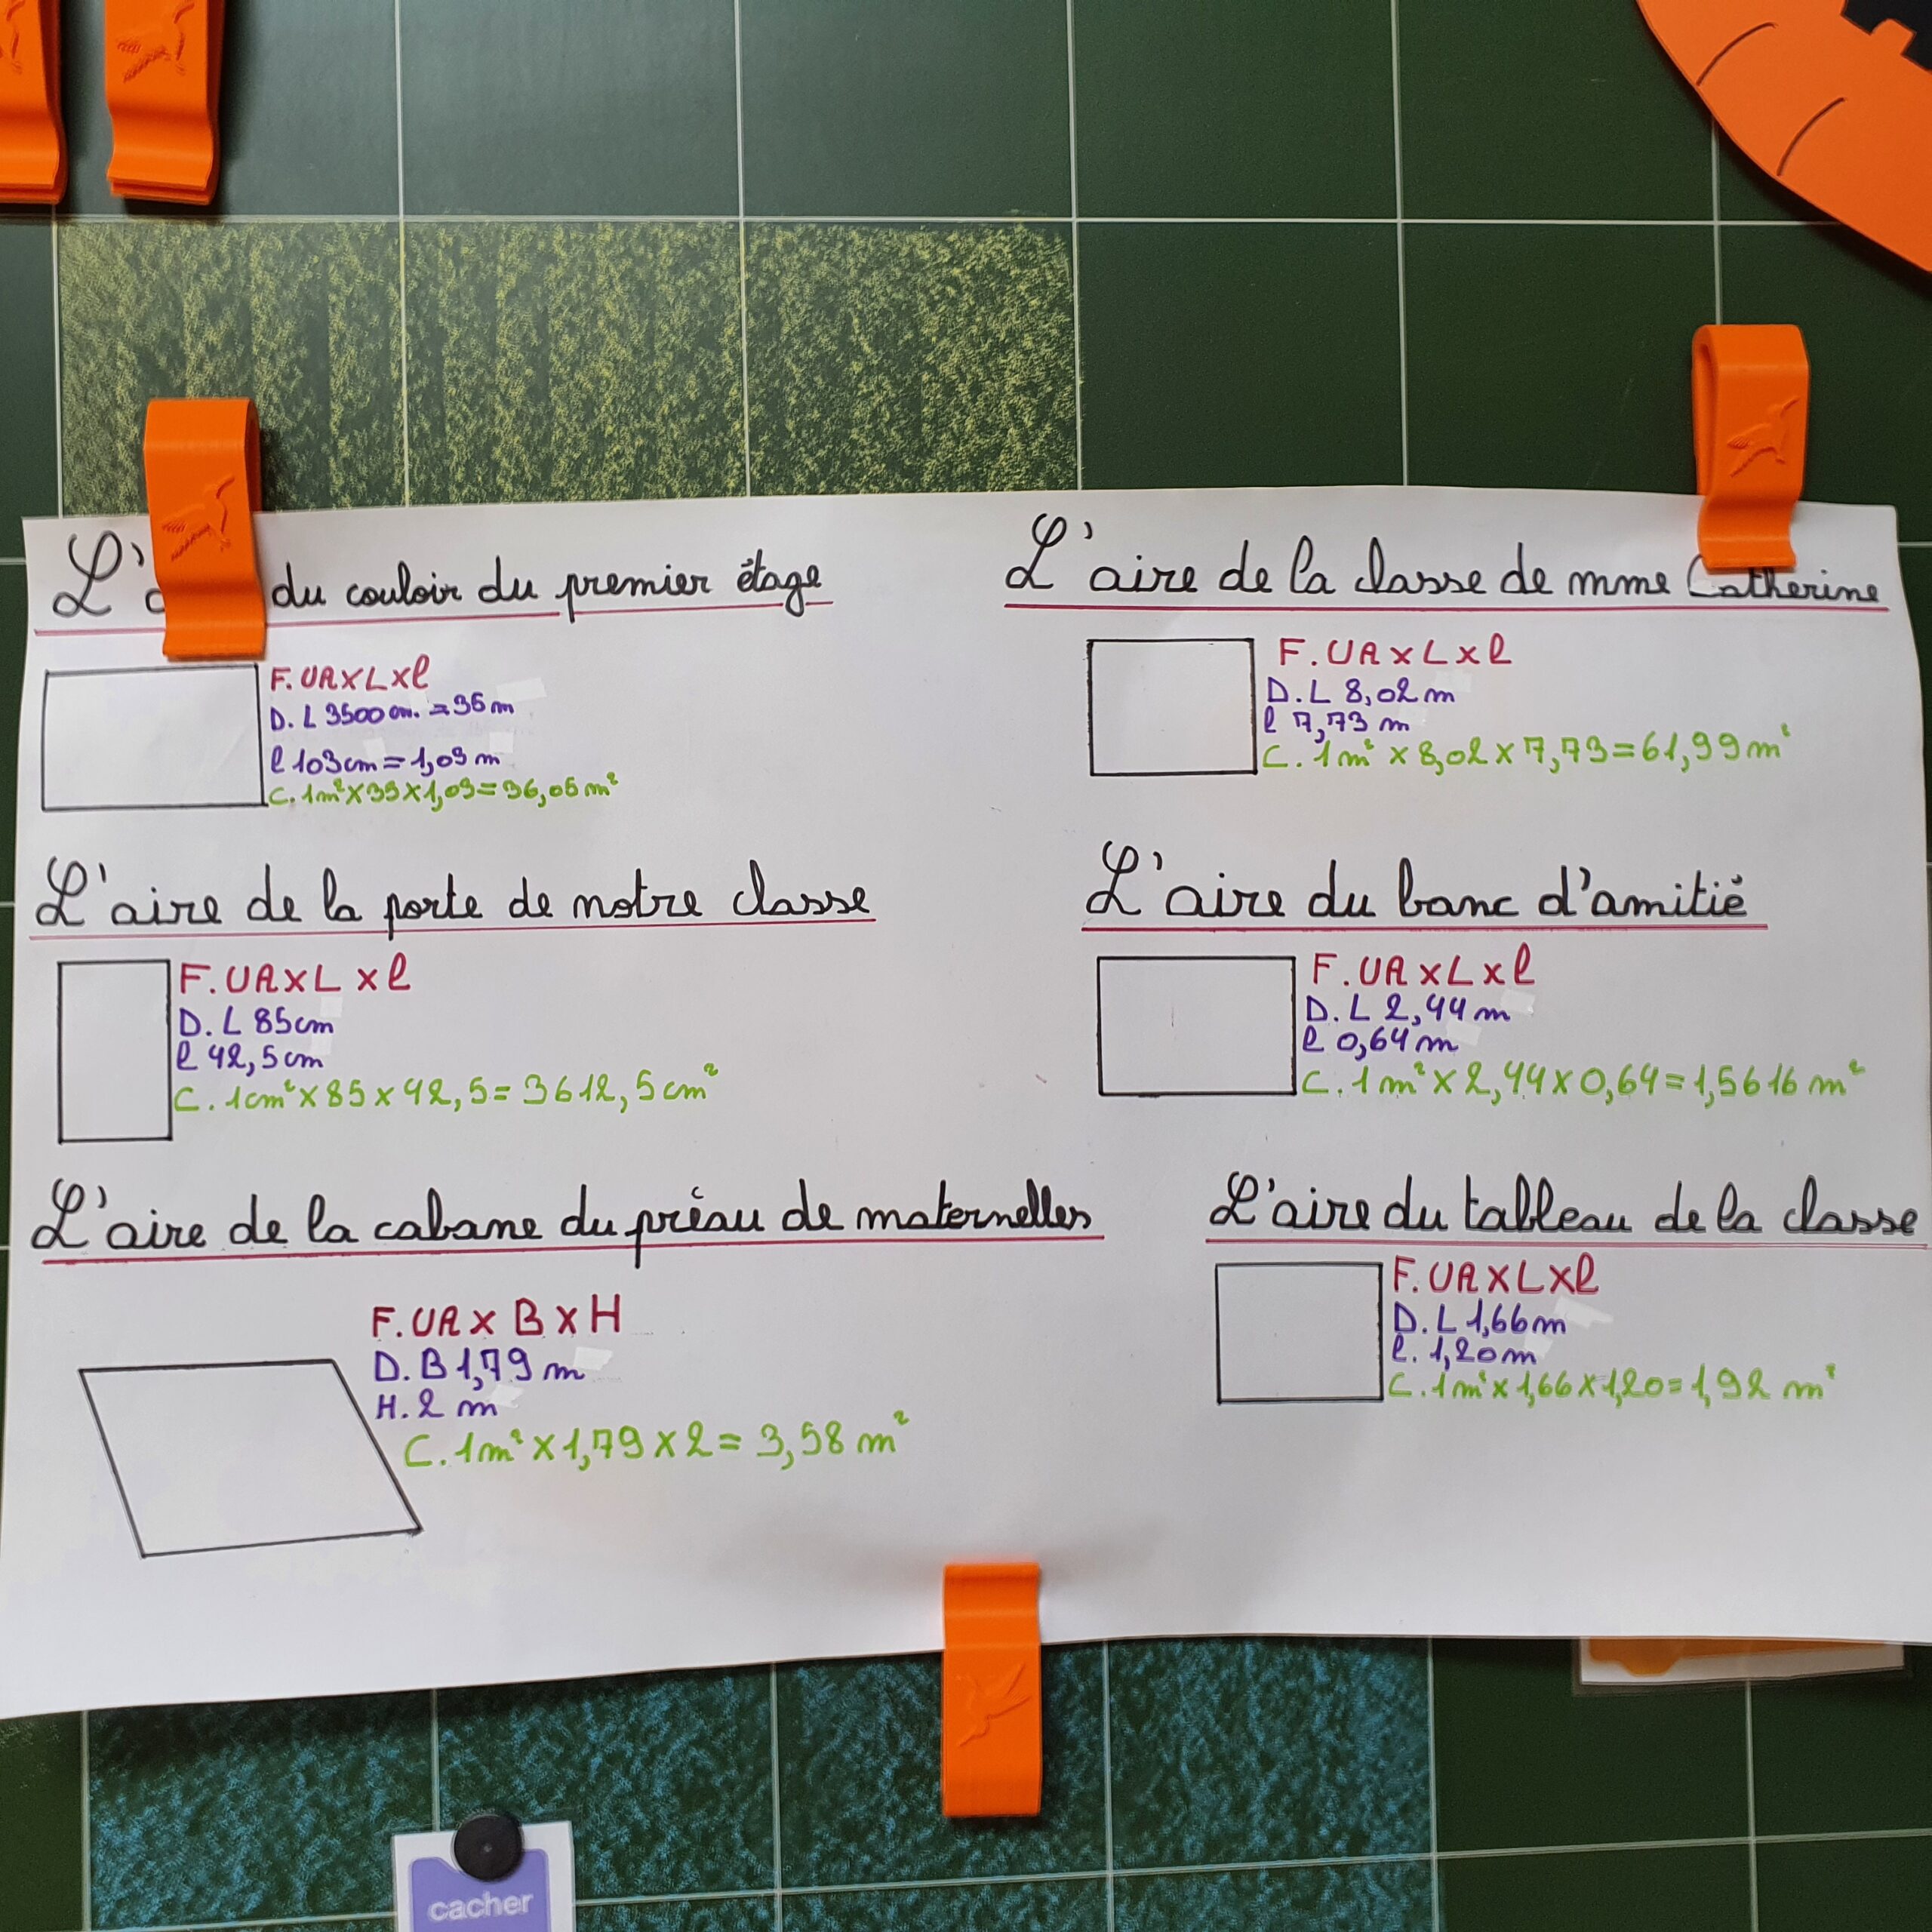 L'a du couloir du premier étage
F. UA x L x l
D. L 3500 cm. = 35 m
l 103 cm = 1,03 m
C. 1 m² x 35 x 1,03 = 36,05 m²
L'aire de la classe de mme Catherine
F. UA x L x l
D. L 8,02 m
l 7,73 m
C. 1 m² x 8,02 x 7,73 = 61,99 m²
L'aire de la porte de notre classe
F. UA x L x l
D. L 85 cm
l 42,5 cm
C. 1 cm² x 85 x 42,5 = 3612,5 cm²
L'aire du banc d'amitié
F. UA x L x l
D. L 2,44 m
l 0,64 m
C. 1 m² x 2,44 x 0,64 = 1,5616 m²
L'aire de la cabane du préau de maternelles
F. UA x B x H
D. B 1,79 m
H. 2 m
C. 1 m² x 1,79 x 2 = 3,58 m²
L'aire du tableau de la classe
F. UA x L x l
D. L 1,66 m
l. 1,20 m
C. 1 m² x 1,66 x 1,20 = 1,92 m²
cacher